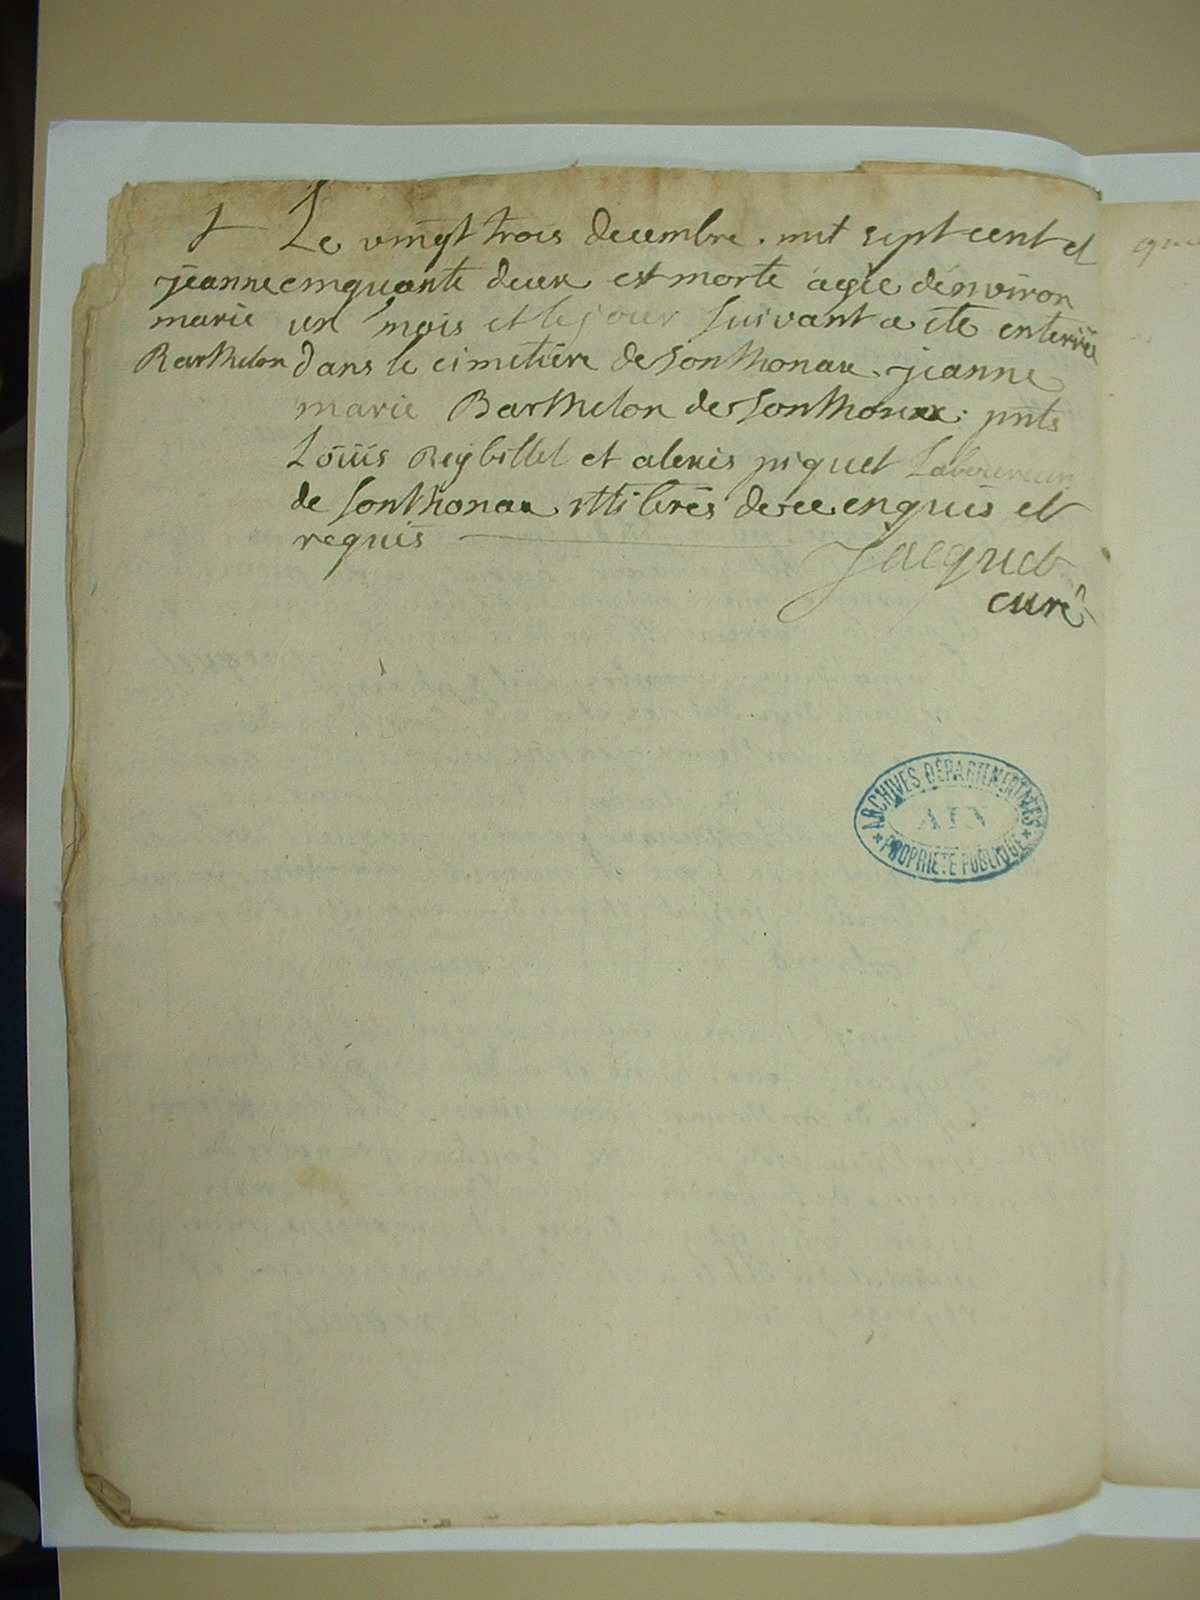 Le vingt trois decembre mil sept cent et
jeanne
marie
Barthelon
cinquante deux est morte agée d'environ
un mois et le jour suivant a été enterrée
dans le cimetière de Sonthonax jeanne
marie Barthelon de Sonthonax pnts
Loüis Reybillet et alexis piquet Laboureurs
de Sonthonax illiterés de ce enquis et
requis
Jacquet
curé
ARCHIVES DÉPARTEMENTALES
AIN
PROPRIÉTÉ PUBLIQUE